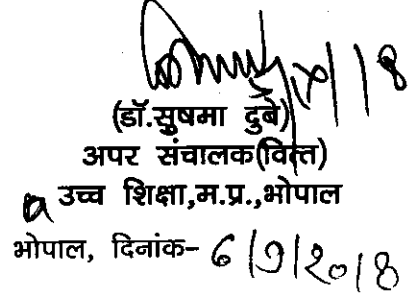 (डॉ.सुषमा दुबे)
अपर संचालक(वित्त)
उच्च शिक्षा,म.प्र.,भोपाल
भोपाल, दिनांक- 6/9/2018